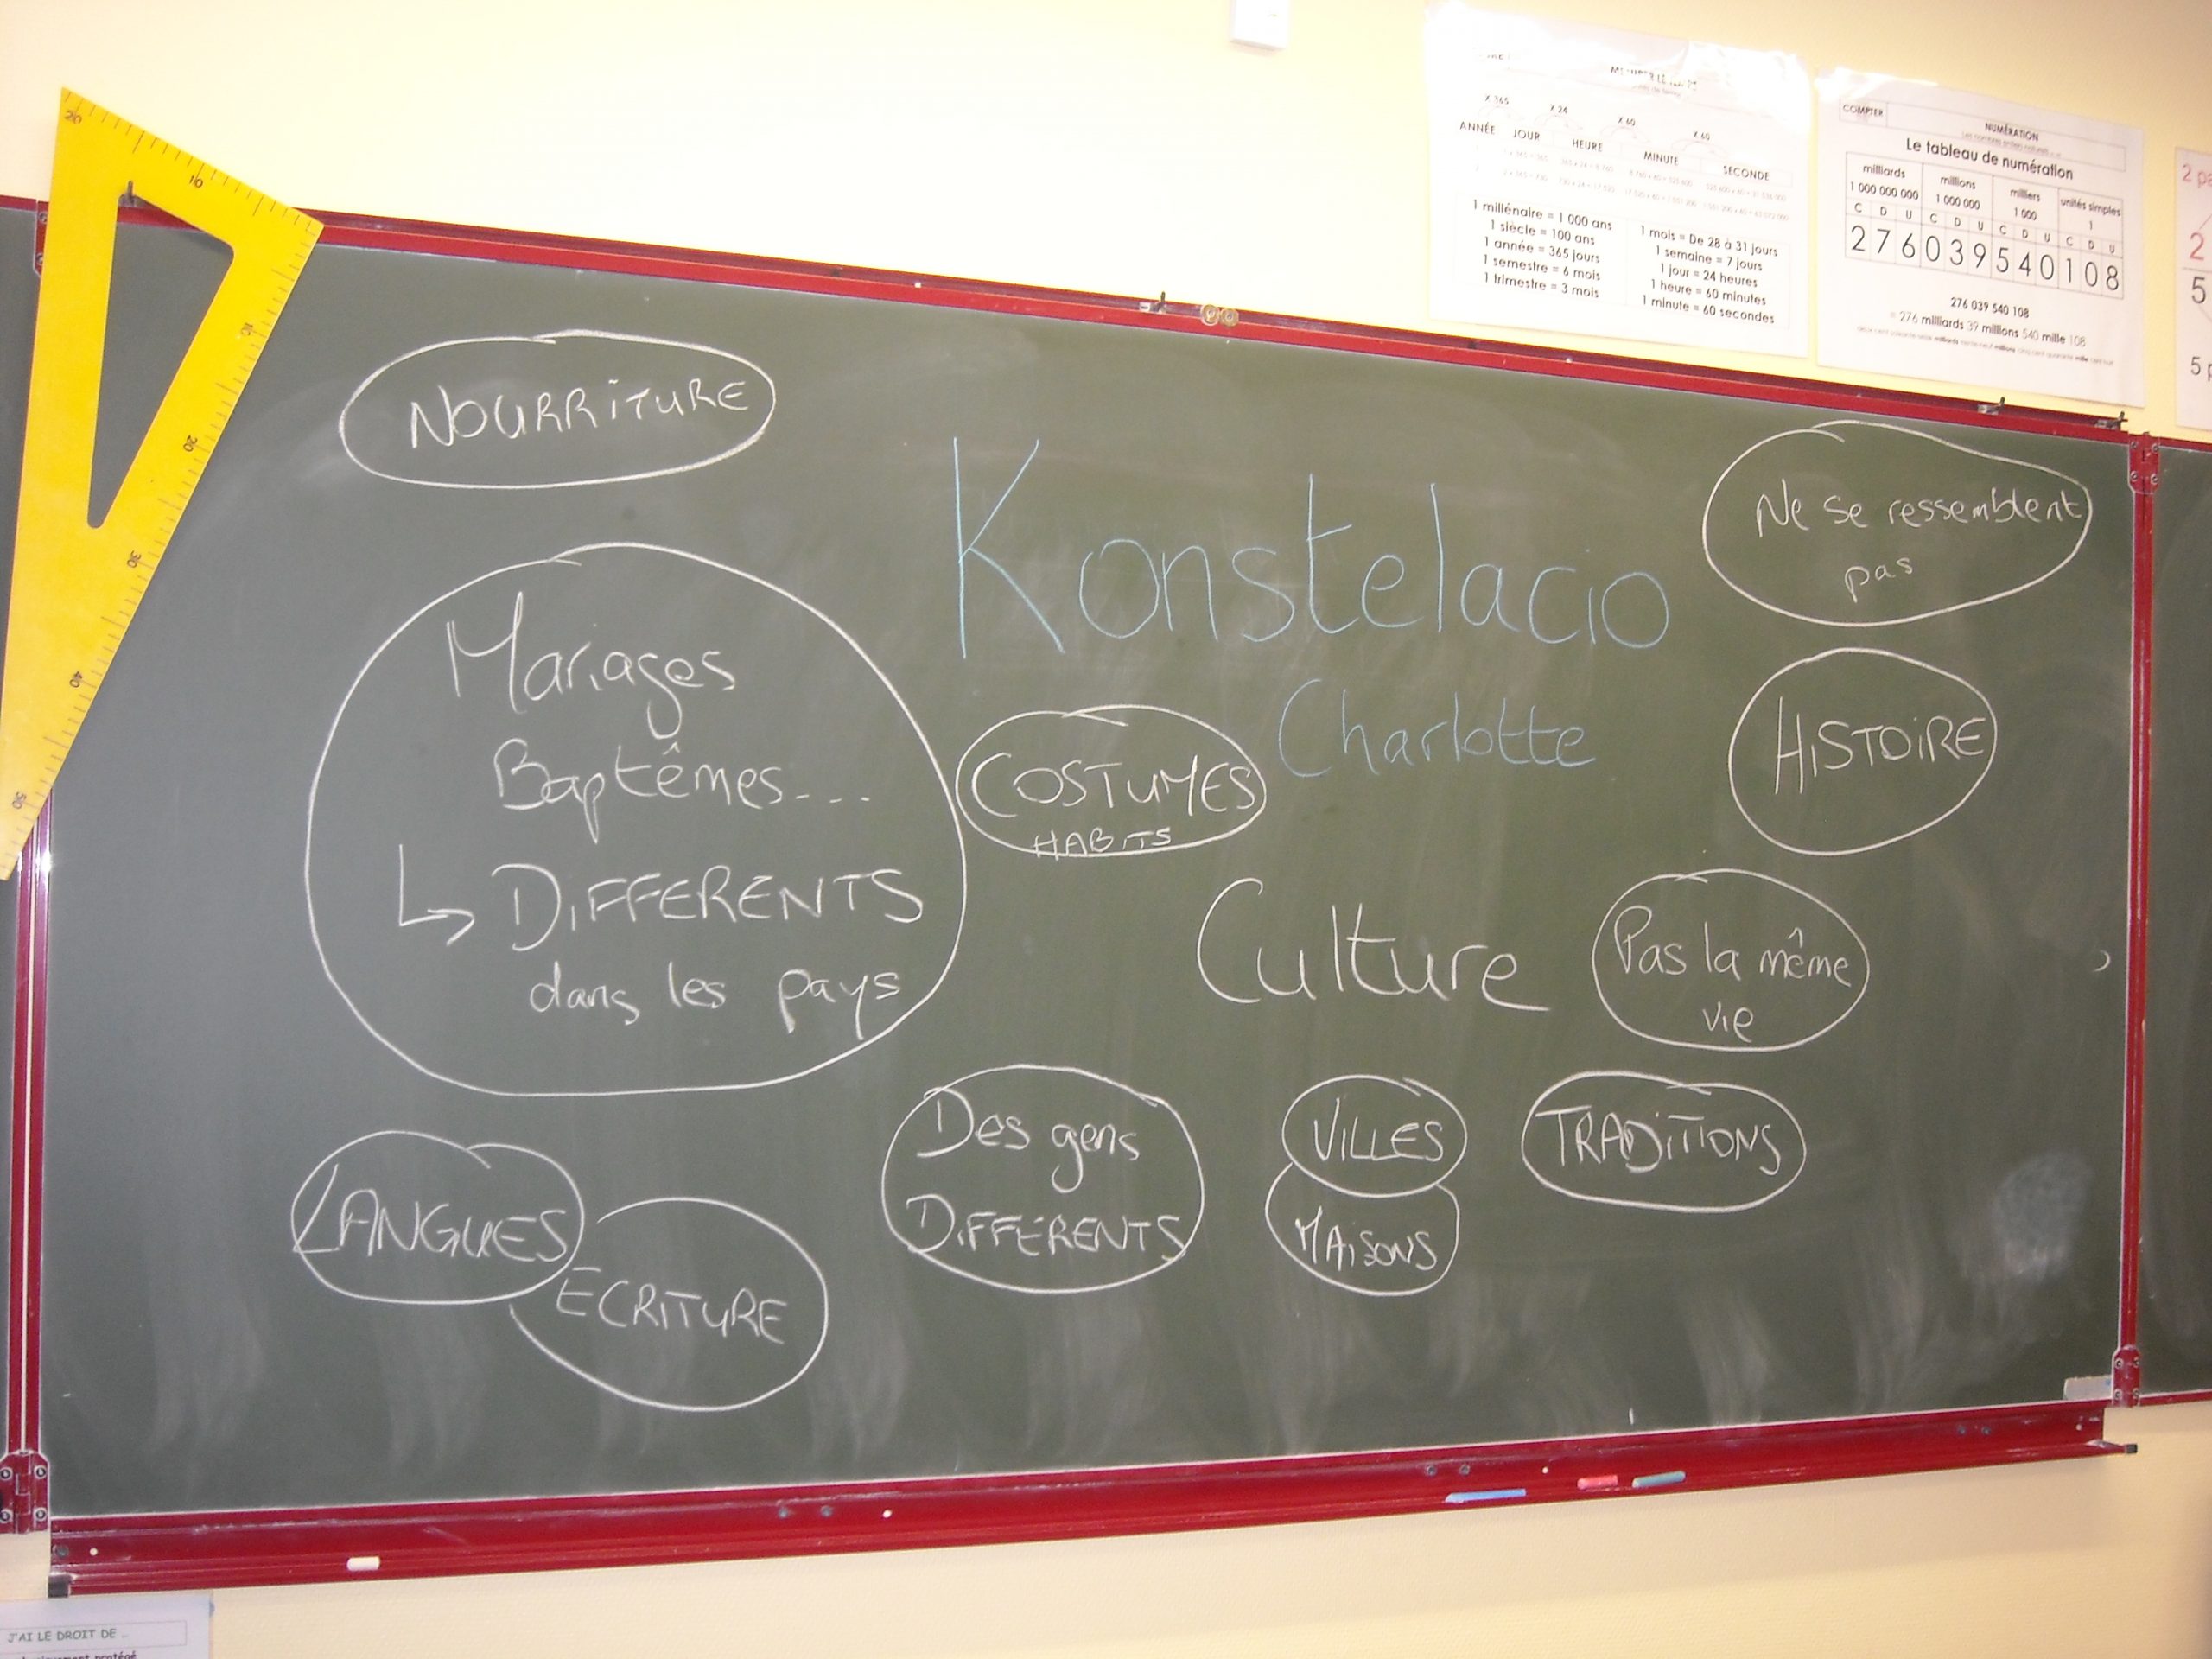 COMPTER
NUMÉRATION
Le tableau de numération
milliards millions milliers unités simples
1 000 000 000 1 000 000 1 000 1
C D U C D U C D U C D U
2 7 6 0 3 9 5 4 0 1 0 8
276 039 540 108
= 276 milliards 39 millions 540 mille 108
X 365 X 24 X 60 X 60
ANNÉE JOUR HEURE MINUTE SECONDE
1 millénaire = 1 000 ans
1 siècle = 100 ans
1 année = 365 jours
1 semestre = 6 mois
1 trimestre = 3 mois
1 mois = De 28 à 31 jours
1 semaine = 7 jours
1 jour = 24 heures
1 heure = 60 minutes
1 minute = 60 secondes
2
5
5
20
10
10
20
30
40
50
NOURRITURE
Konstelacio
Charlotte
Ne se ressemblent
pas
Mariages
Baptêmes...
↳ DIFFERENTS
dans les pays
COSTUMES
HABITS
HISTOIRE
Culture
Pas la même
vie
Des gens
DIFFÉRENTS
VILLES
MAISONS
TRADITIONS
LANGUES
ECRITURE
J'AI LE DROIT DE ...
protégé